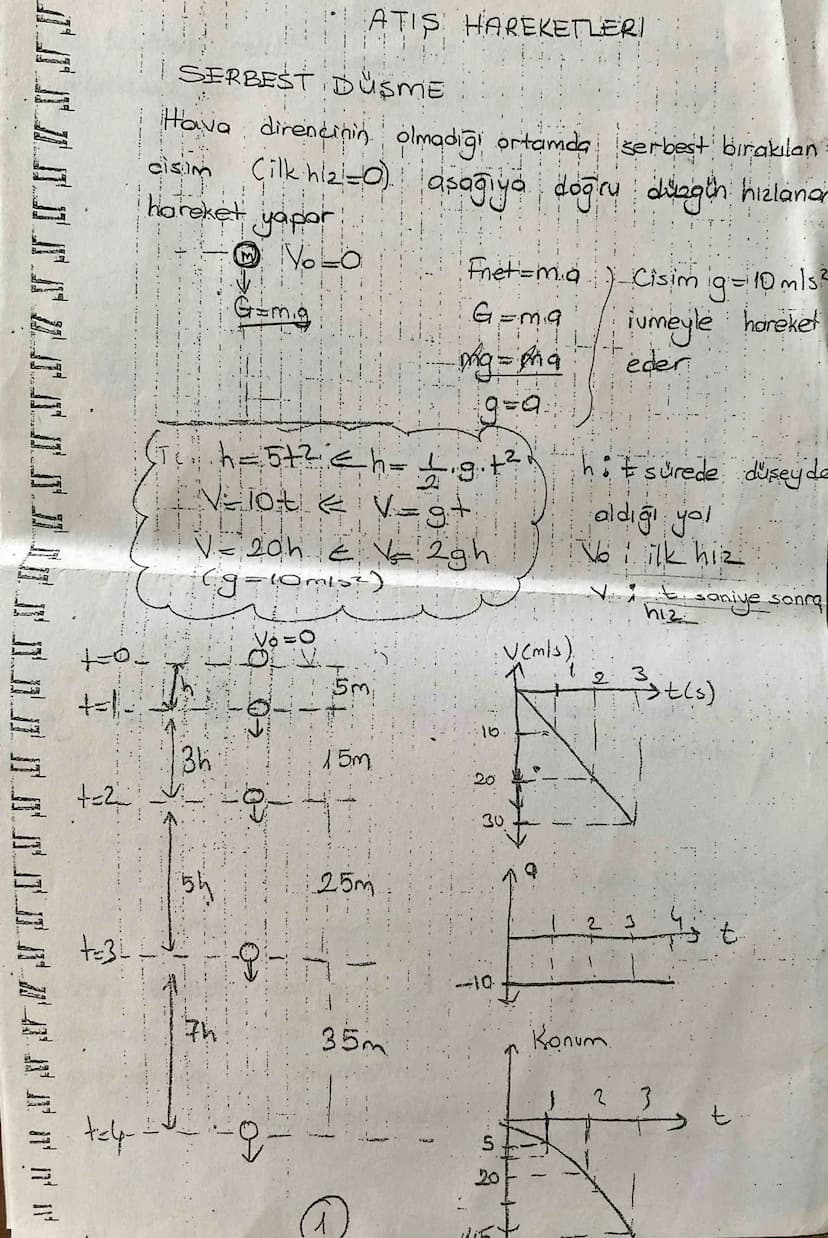 ATIŞ HAREKETLERİ
SERBEST DÜŞME
Hava direncinin olmadığı ortamda serbest bırakılan
cisim (ilk hız=0) aşağıya doğru düzgün hızlanan
hareket yapar
M V₀=0
G=m.g
Fnet=m.a
G=m.a
mg=ma
g=a
Cisim g=10m/s²
ivmeyle hareket
eder
h=5t² ⇐ h=1/2.g.t²
V=10t ⇐ V=gt
V=20h ⇐ V=2gh
(g=10m/s²)
h: t sürede düşeyde
aldığı yol
V₀: ilk hız
V: t saniye sonra
hız
V₀=0
t=0
h 5m
t=1
3h 15m
t=2
5h 25m
t=3
7h 35m
t=4
V(m/s)
1 2 3 t(s)
10
20
30
a
1 2 3 4 t
-10
Konum
1 2 3 t
5
20
45
1